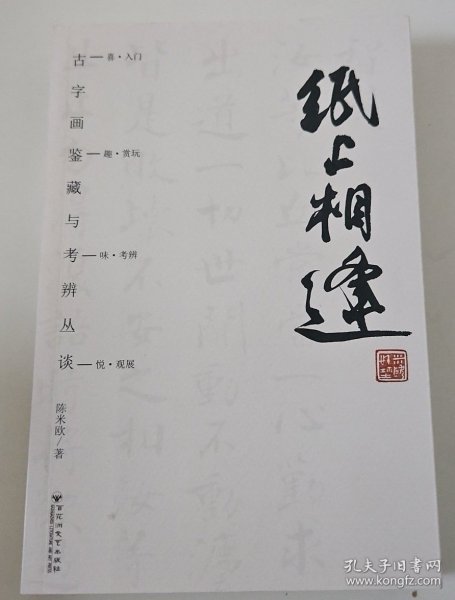 纸上相逢
古字画鉴藏与考辨丛谈
喜·入门
趣·赏玩
味·考辨
悦·观展
陈米欧/著
百花洲文艺出版社
孔夫子旧书网
www.kongfz.com